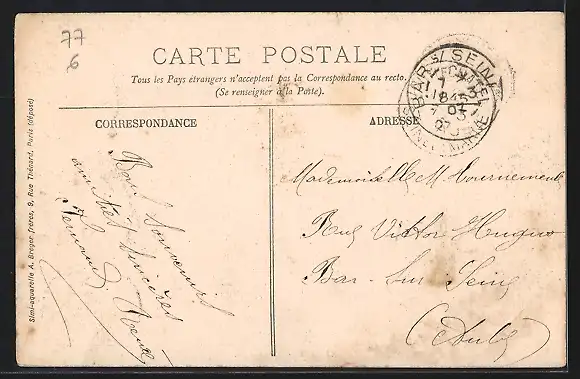 77
6
CARTE POSTALE
Tous les Pays étrangers n'acceptent pas la Correspondance au recto.
(Se renseigner à la Poste).
CORRESPONDANCE
ADRESSE
BAR S/ SEINE
Bons souvenirs
amitiés sincères
Fernand
Mademoiselle M. Tournemeule
Rue Victor Huguo
Bar-Sur Seine
(Aube)
Simi-aquarelle A. Breger frères, 9, Rue Thénard, Paris (déposé)